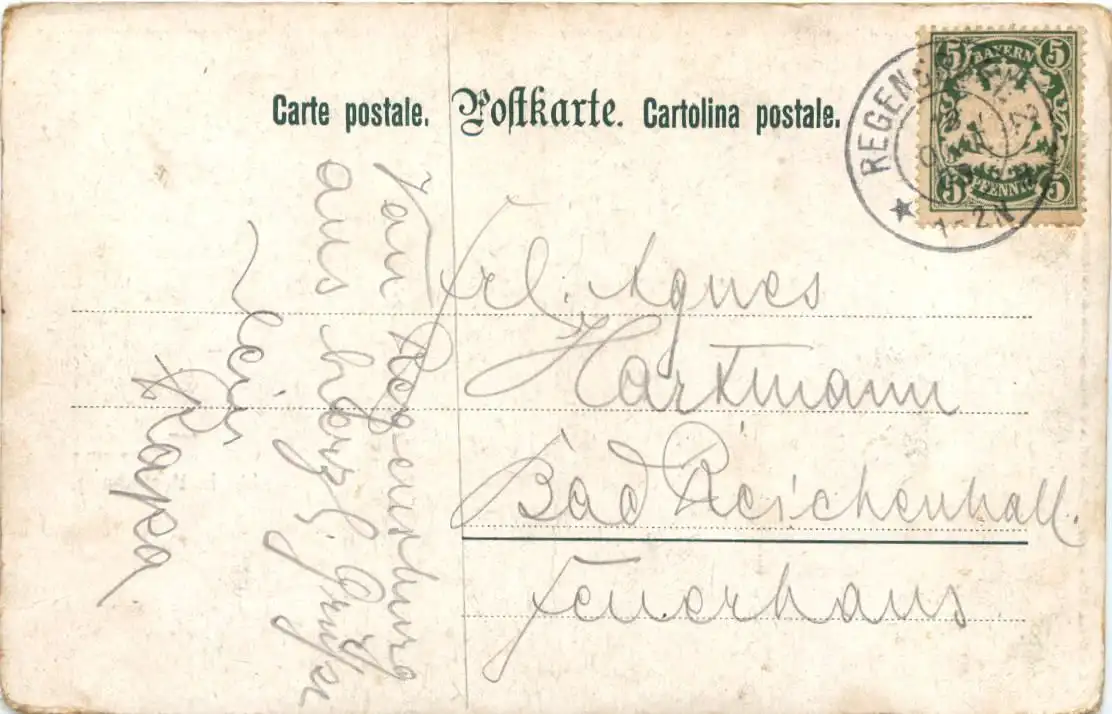 Carte postale. Postkarte. Cartolina postale.
5 BAYERN 5
5 PFENNIG 5
REGENS
1-2N
Frl. Agnes
Hartmann
Bad Reichenhall.
Feuerhaus
Von Regensburg
aus herzl. Grüße
Papa